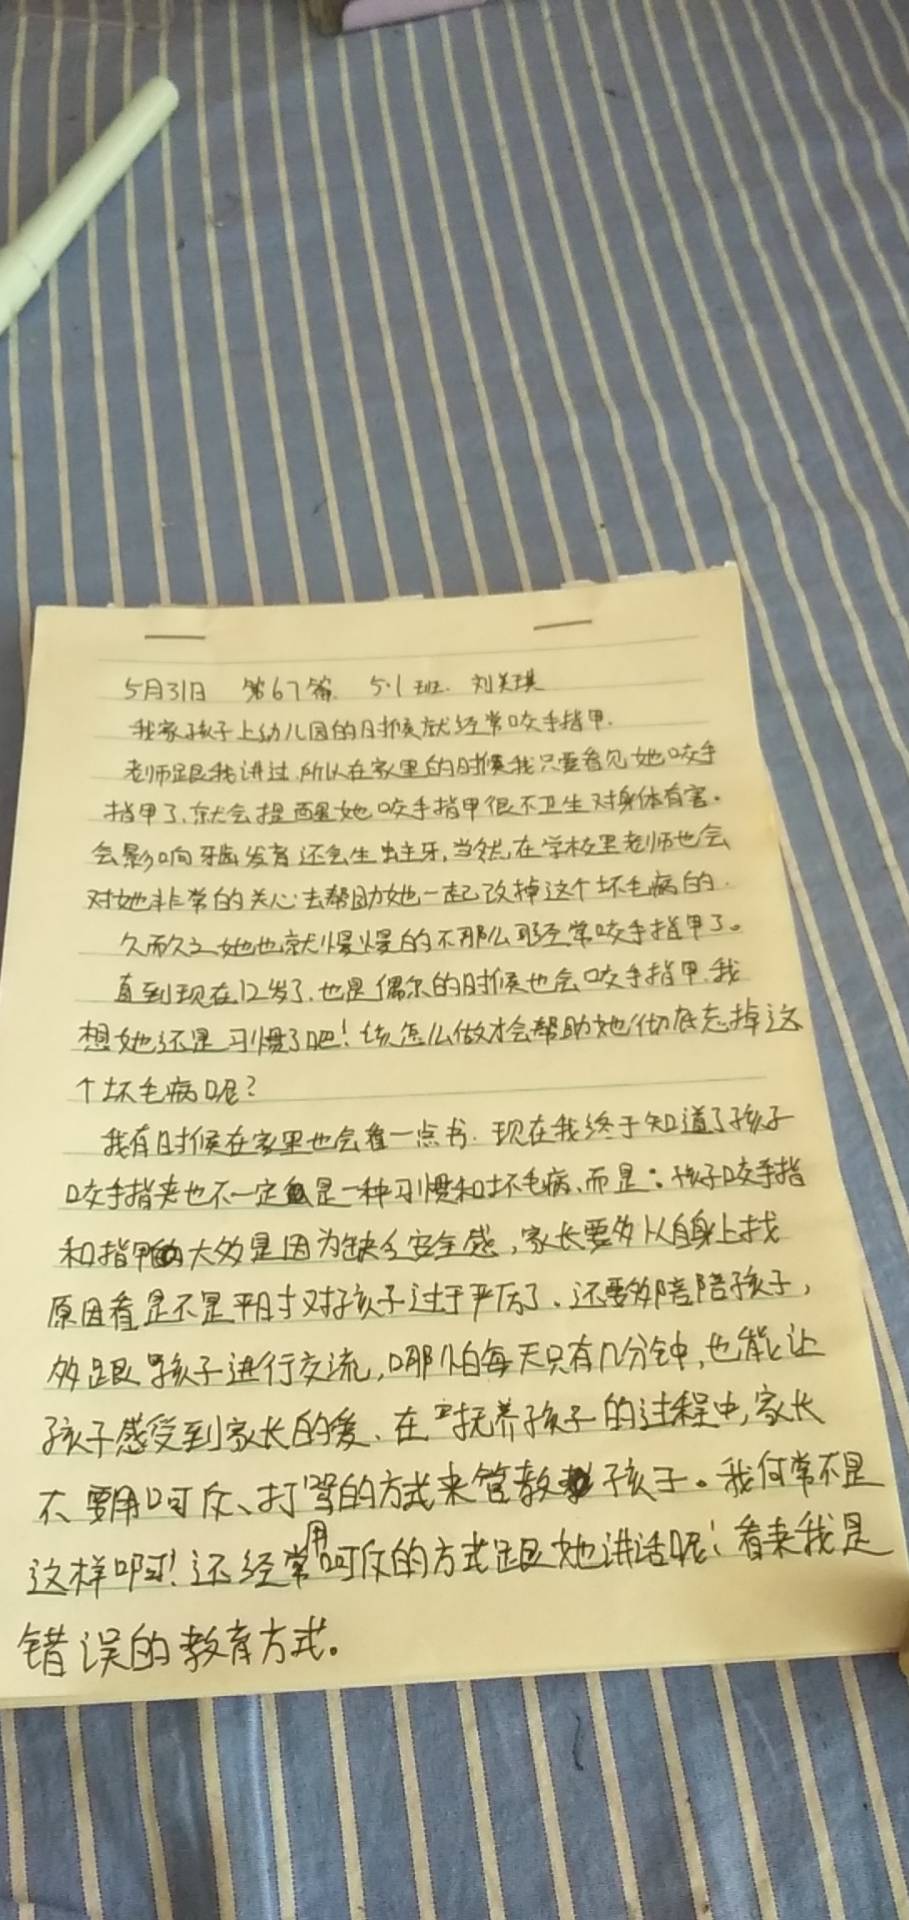 5月31日 第67篇 5.1班. 刘美琪
我家孩子上幼儿园的时候就经常咬手指甲.
老师跟我讲过.所以在家里的时候我只要看见她咬手
指甲了、就会提醒她咬手指甲很不卫生对身体有害。
会影响牙齿发育还会生蛀牙,当然,在学校里老师也会
对她非常的关心去帮助她一起改掉这个坏毛病的.
久而久之她也就慢慢的不那么经常咬手指甲了。
直到现在12岁了.也是偶尔的时候也会咬手指甲.我
想她还是习惯了吧!该怎么做才会帮助她彻底忘掉这
个坏毛病呢?
我有时候在家里也会看一点书.现在我终于知道了孩子
咬手指夹也不一定是一种习惯和坏毛病、而是:孩子咬手指
和指甲大多是因为缺乏安全感,家长要多从自身上找
原因看是不是平时对孩子过于严厉了.还要多陪陪孩子,
多跟孩子进行交流,哪怕每天只有几分钟,也能让
孩子感受到家长的爱、在抚养孩子的过程中,家长
不要用呵斥、打骂的方式来管教孩子。我何常不是
这样啊!还经常用呵斥的方式跟她讲话呢!看来我是
错误的教育方式。